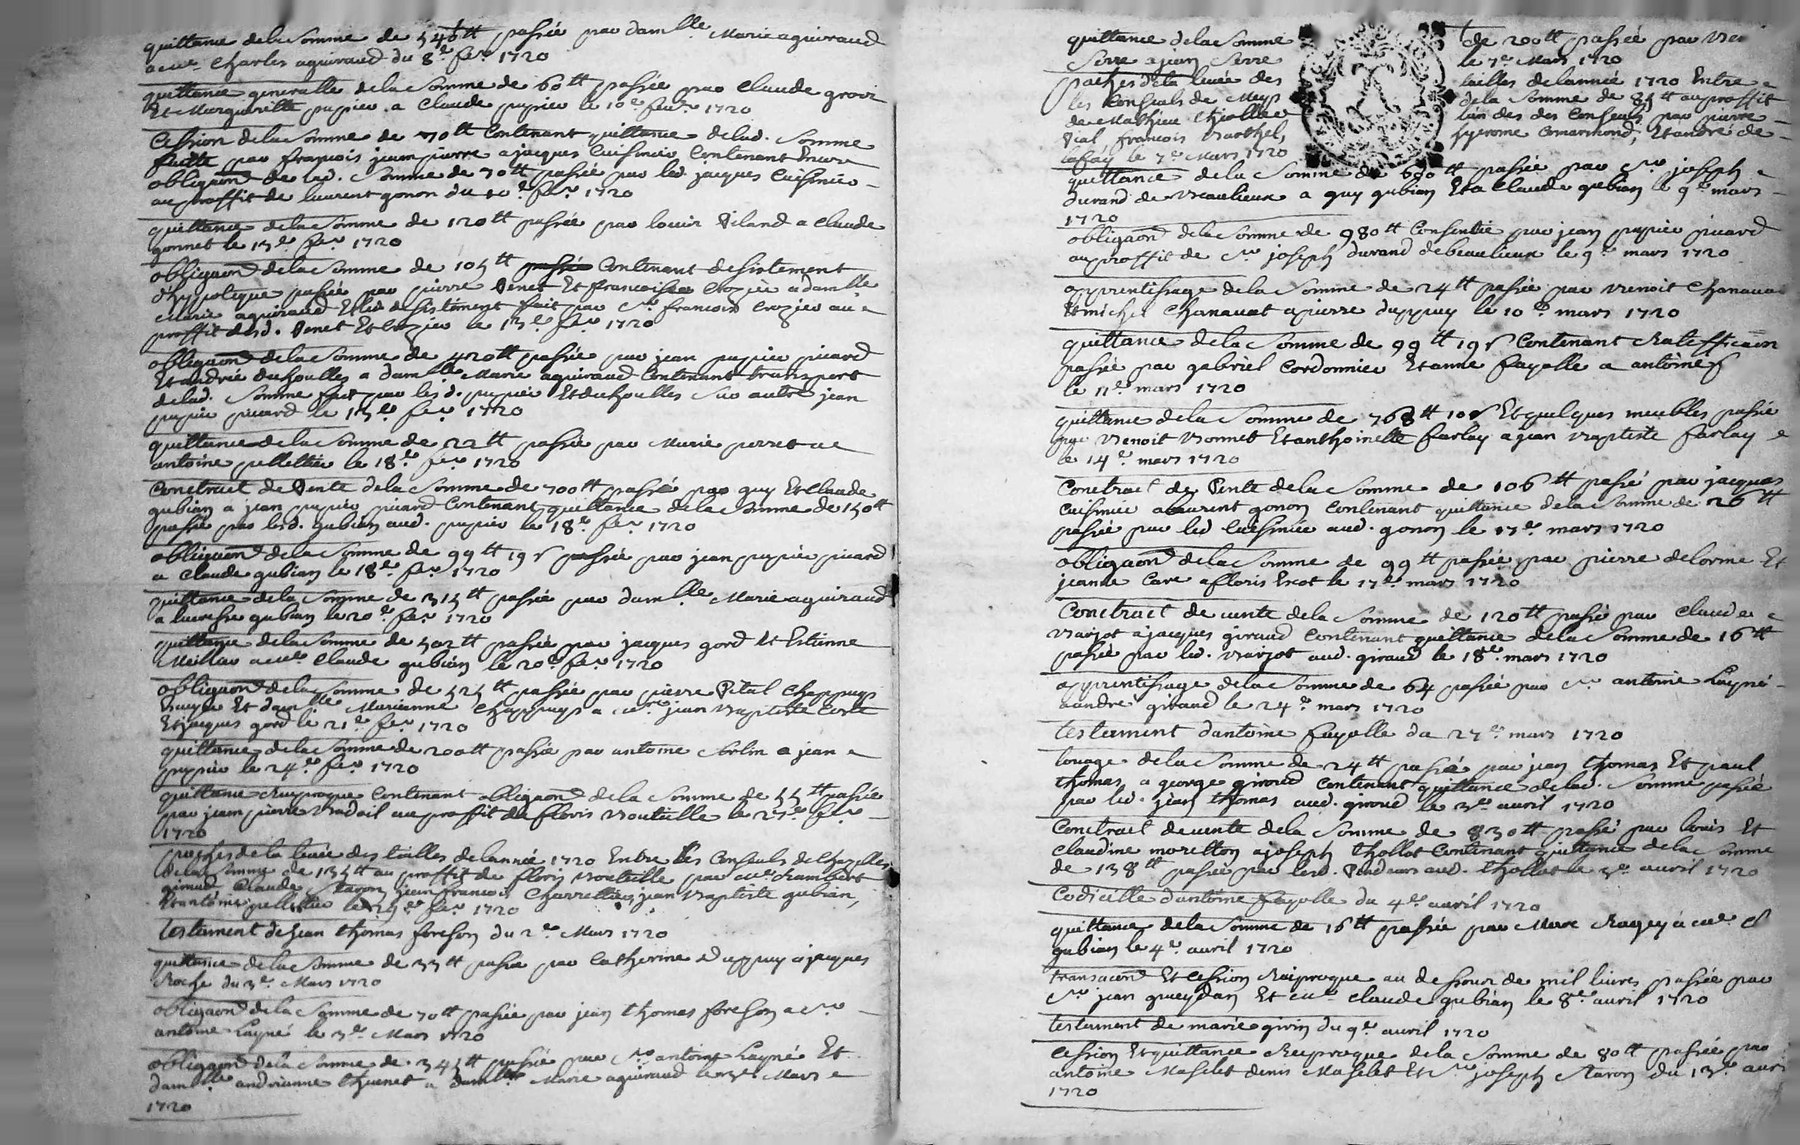 quittance dela Somme de 540tt passée par damlle Marie aguiraud
a me Charles aguiraud du 8e fer 1720
quittance generalle dela Somme de 60tt passée par Claude
Et Margueritte papier a Claude papier le 10e feur 1720
Cession dela Somme de 70tt Contenant quittance delad. Somme
faitte par françois jeanpierre a jacques Cuisinier Contenant
obligaon de lad. Somme de 70tt passée par led. jacques Cuisinier
au proffit de laurent gonon du 10e fer 1720
quittance dela Somme de 120tt passée par louis Viland a Claude
gonnet le 13e fer 1720
obligaon dela Somme de 105tt Contenant desistement
d'hypoteque passée par pierre Venet Et francoise Crozier a damlle
Marie aguiraud Et led desistement fait par Sr francois Crozier au
proffit desd. Venet Et Crozier le 13e fer 1720
obligaon dela Somme de 420tt passée par jean papier picard
Et andrée duhoulles a damlle Marie aguiraud Contenant transport
delad. Somme fait par lesd. papier Et duhoulles Sur autre jean
papier picard le 15e fer 1720
quittance dela Somme de 22tt passée par Marie perret a
antoine pelletier le 18e fer 1720
Contract de Vente dela Somme de 700tt passé par guy Et Claude
gubian a jean papier picard Contenant quittance dela Somme de 150tt
passée par lesd. gubian aud. papier le 18e fer 1720
obligaon dela Somme de 99tt 19s passée par jean papier picard
a Claude gubian le 18e fer 1720
quittance dela Somme de 315tt passée par damlle Marie aguiraud
a gubian le 20e fer 1720
quittance dela Somme de 502tt passée par jacques gord Et Estienne
Meillar a me Claude gubian le 20e fer 1720
obligaon dela Somme de 525tt passée par pierre Vital Chappuys
Et damlle Marianne Chappuys a me jean Baptiste Coste
Et jacques gord le 21e fer 1720
quittance dela Somme de 200tt passée par antoine Sorlin a jean
papier le 24e fer 1720
quittance Reciproque Contenant obligaon dela Somme de 55tt passée
par jean pierre au proffit de floris Bouteille le 25e fer
1720
paches dela levée des tailles de lannée 1720 Entre les Consuls de Chazelles
dela Somme de 135tt au proffit de floris Bouteille par me Rambert
giraud Claude Staron jean francois Charretier jean Baptiste gubian,
Et antoine pelletier le 25e fer 1720
testament de jean thomas foreson du 2e Mars 1720
quittance dela Somme de 33tt passée par Catherine Duppuy a jacques
Roche du 3e Mars 1720
obligaon dela Somme de 70tt passée par jean thomas foreson a Sr
antoine Layné le 3e Mars 1720
obligaon dela Somme de 345tt passée par Sr antoine Layné Et
damlle andrianne thevenet a damlle Marie aguiraud le 3e Mars
1720
quittance dela Somme de 200tt passée par
Serre a jean Serre le 7e Mars 1720
paches dela levée des tailles delannée 1720 Entre
les Consuls de Meys dela Somme de 85tt au proffit
de Mathieu Thiollier lun des des Consuls par pierre
Vial, francois Barthel, hyerome Comarmond, Et andré de
lafay le 7e Mars 1720
quittance dela Somme de 600tt passée par Sr joseph
durand de Beaulieux a guy gubian Et a Claude gubian le 9e mars
1720
obligaon dela Somme de 980tt Consentie par jean papier picard
au proffit de Sr joseph durand debeaulieux le 9e mars 1720
apprentissage dela Somme de 24tt passée par Benoit Chanavat
Et michel Chanavat a pierre duppuy le 10e mars 1720
quittance dela Somme de 99tt 19s Contenant Ratifficaon
passée par gabriel Cordonnier Et anne fayolle a antoine
le 11e mars 1720
quittance dela Somme de 768tt 10s Et quelques meubles passée
par Benoit Bonnet Et anthoinette farlay a jean Baptiste farlay
le 14e mars 1720
Contract de Vente dela Somme de 106tt passé par jacques
Cuisinier a laurent gonon Contenant quittance dela Somme de 26tt
passée par led Cuisinier aud. gonon le 17e mars 1720
obligaon dela Somme de 99tt passée par pierre delorme Et
jeanne Care a floris Escot le 17e mars 1720
Contract de vente dela Somme de 120tt passé par Claude
Barjot a jacques giraud Contenant quittance dela Somme de 16tt
passée par led. Barjot aud. giraud le 18e mars 1720
apprentissage dela Somme de 64 passée par Sr antoine Layné
a andre giraud le 24e mars 1720
testament d'antoine fayolle du 27e mars 1720
louage dela Somme de 24tt passée par jean thomas Et paul
thomas a george giroud Contenant quittance delad. Somme passée
par led. jean thomas aud. giroud le 3e avril 1720
Contract de vente dela Somme de 830tt passé par louis Et
Claudine moretton a joseph thollot Contenant quittance dela Somme
de 138tt passée par lesd. Vendeurs aud. thollot le 3e avril 1720
Codicille d'antoine fayolle du 4e avril 1720
quittance dela Somme de 16tt passée par Marc Ragey a me Cl
gubian le 4e avril 1720
transacaon Et Cession Reciproque au dessous de mil livres passée par
Sr jean gueydan Et me Claude gubian le 8e avril 1720
testament de marie givin du 9e avril 1720
Cession Et quittance Reciproque dela Somme de 80tt passée par
antoine Masclet denis Masclet Et Sr joseph Staron du 13e avri
1720